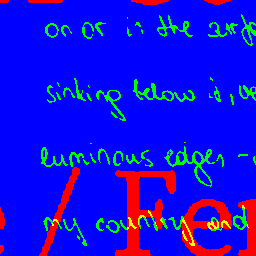 on or in the surfa
sinking below it, we
luminous edges -
my country and
/ Fer